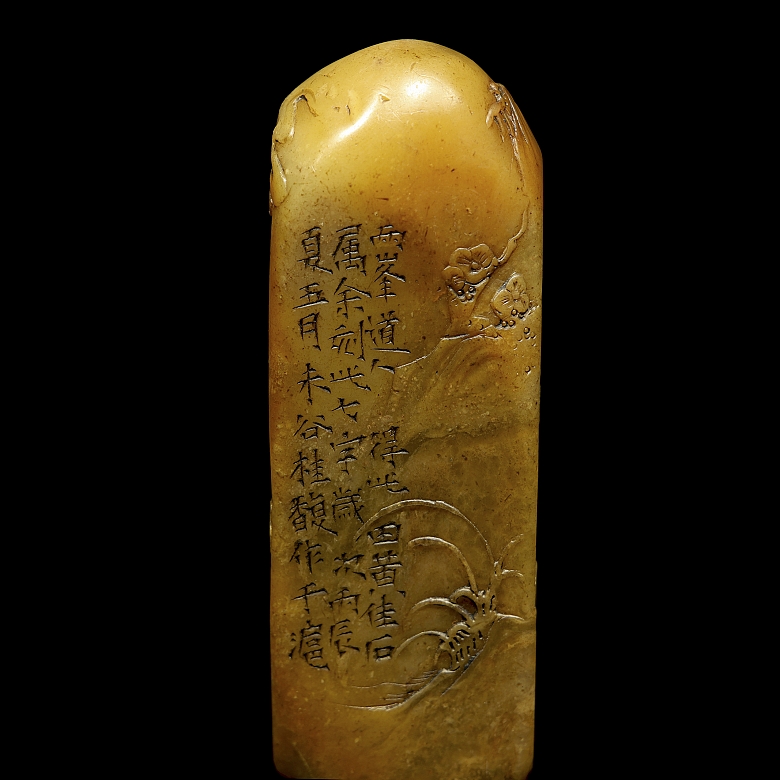 雨峯道人得此田黄佳石
属余刻此七字歳次丙辰
夏五月未谷桂馥作于滬